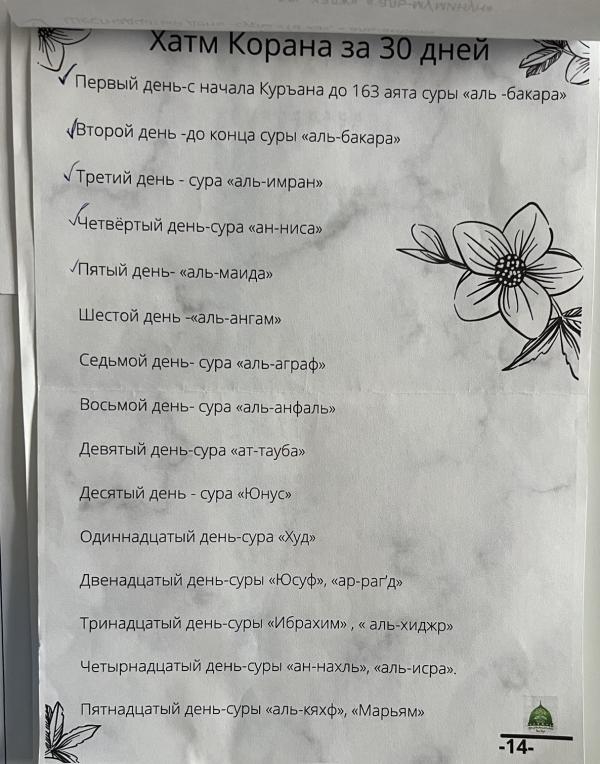 Хатм Корана за 30 дней
Первый день-с начала Куръана до 163 аята суры «аль -бакара»
Второй день -до конца суры «аль-бакара»
Третий день - сура «аль-имран»
Четвёртый день-сура «ан-ниса»
Пятый день- «аль-маида»
Шестой день -«аль-ангам»
Седьмой день- сура «аль-аграф»
Восьмой день- сура «аль-анфаль»
Девятый день-сура «ат-тауба»
Десятый день - сура «Юнус»
Одиннадцатый день-сура «Худ»
Двенадцатый день-суры «Юсуф», «ар-раг’д»
Тринадцатый день-суры «Ибрахим» , « аль-хиджр»
Четырнадцатый день-суры «ан-нахль», «аль-исра».
Пятнадцатый день-суры «аль-кяхф», «Марьям»
-14-